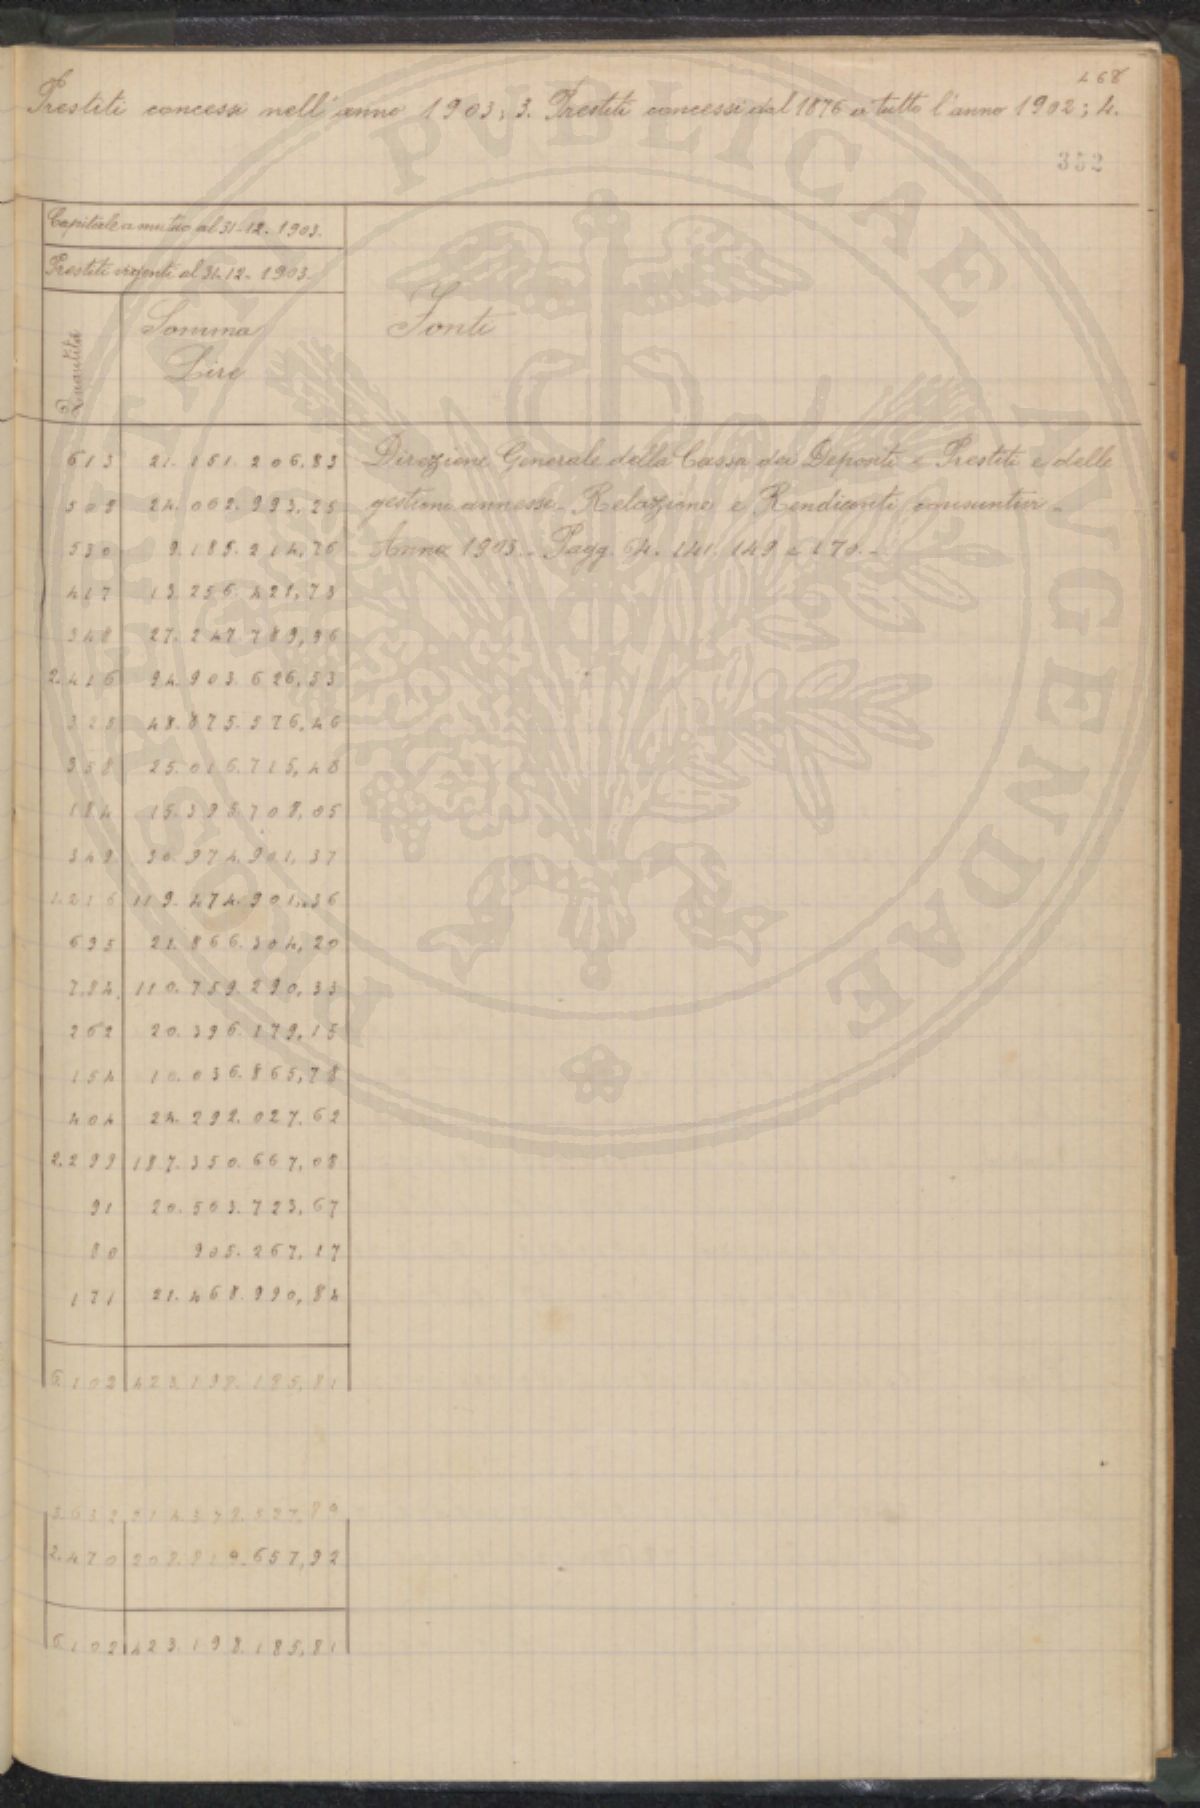 468
Prestiti concessi nell'anno 1903; 3. Prestiti concessi dal 1876 a tutto l'anno 1902; 4.
352
Capitale a mutuo al 31-12-1903.
Prestiti vigenti al 31-12-1903.
Quantità Somma Lire Fonti
613 21.151.206,83 Direzione Generale della Cassa dei Depositi e Prestiti e delle
508 24.062.993,25 gestioni annesse - Relazione e Rendiconti consuntivi -
530 9.185.214,76 Anno 1903 - Pagg. 64. 141. 149 e 170. -
417 13.256.421,73
348 27.247.789,96
2.416 94.903.626,53
325 48.075.576,46
358 25.016.715,48
184 15.395.708,05
349 30.974.901,37
1.216 119.474.901,36
695 21.866.304,20
784 110.759.290,33
262 20.396.179,15
154 10.036.865,78
404 24.292.027,62
2.299 187.350.667,08
91 20.503.723,67
80 905.267,17
171 21.468.990,84
6.102 423.198.185,81
3.632 214.378.527,89
2.470 208.819.657,92
6.102 423.198.185,81
PUBLICAE AVGENDAE